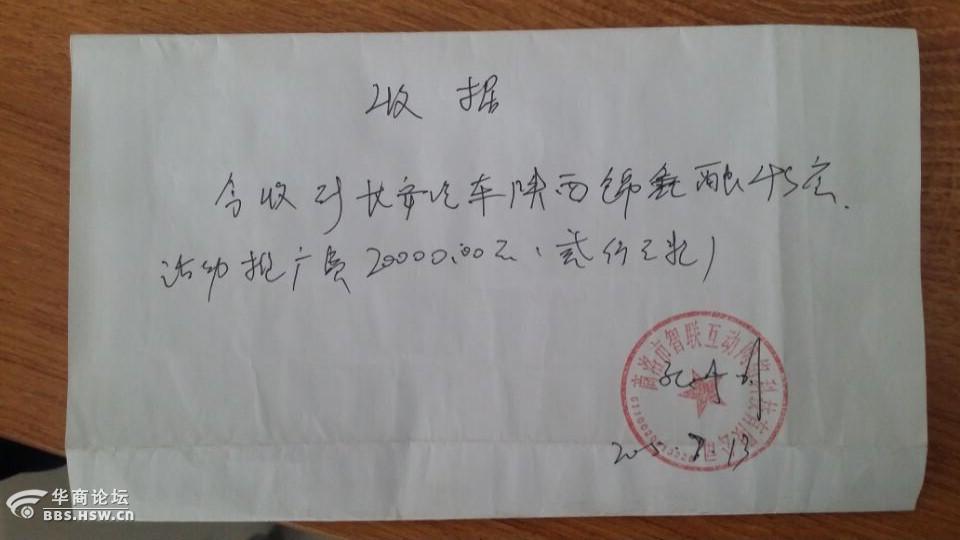 收据
今收到长安汽车陕西锦 融4S店.
活动推广费20000.00元(贰仟元整)
商洛市智联互动网络科技有限公司
2015.7.13
华商论坛
BBS.HSW.CN